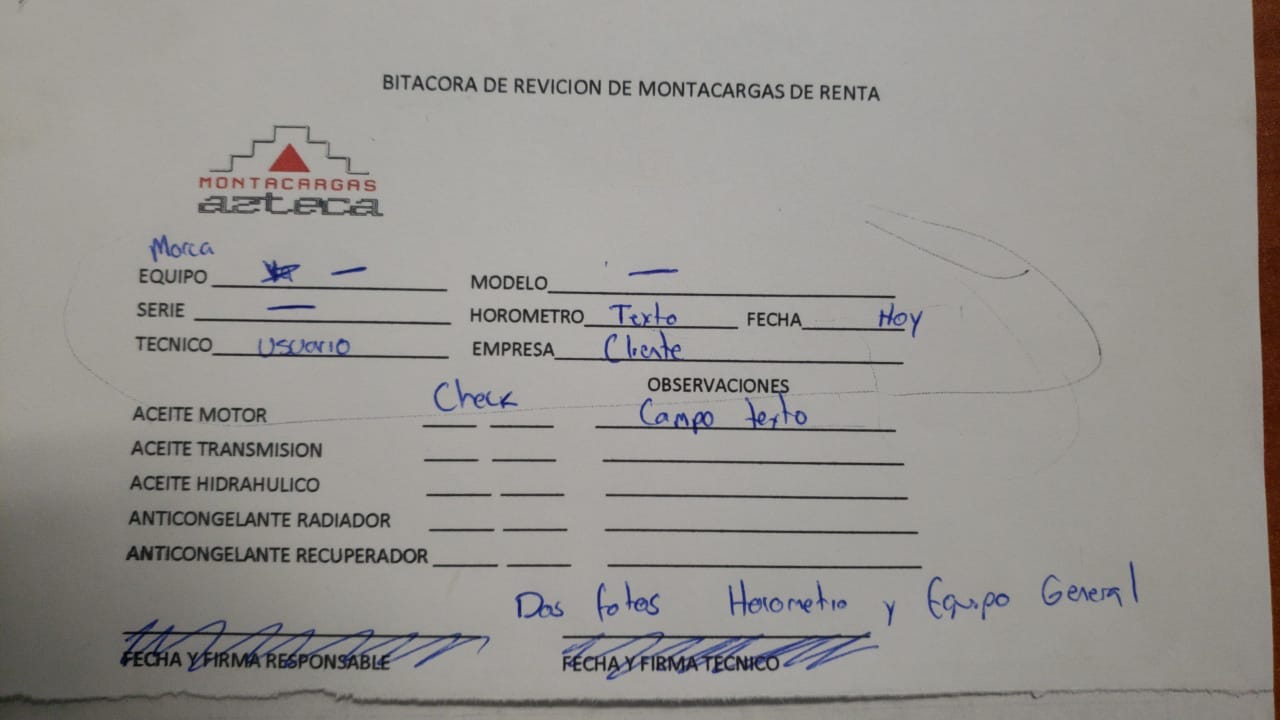 BITACORA DE REVICION DE MONTACARGAS DE RENTA
MONTACARGAS
azteca
Marca
EQUIPO — MODELO —
SERIE — HOROMETRO Texto FECHA Hoy
TECNICO usuario EMPRESA Cliente
OBSERVACIONES
ACEITE MOTOR Check Campo texto
ACEITE TRANSMISION
ACEITE HIDRAHULICO
ANTICONGELANTE RADIADOR
ANTICONGELANTE RECUPERADOR
Dos fotos Horometro y Equipo General
FECHA Y FIRMA RESPONSABLE FECHA Y FIRMA TECNICO